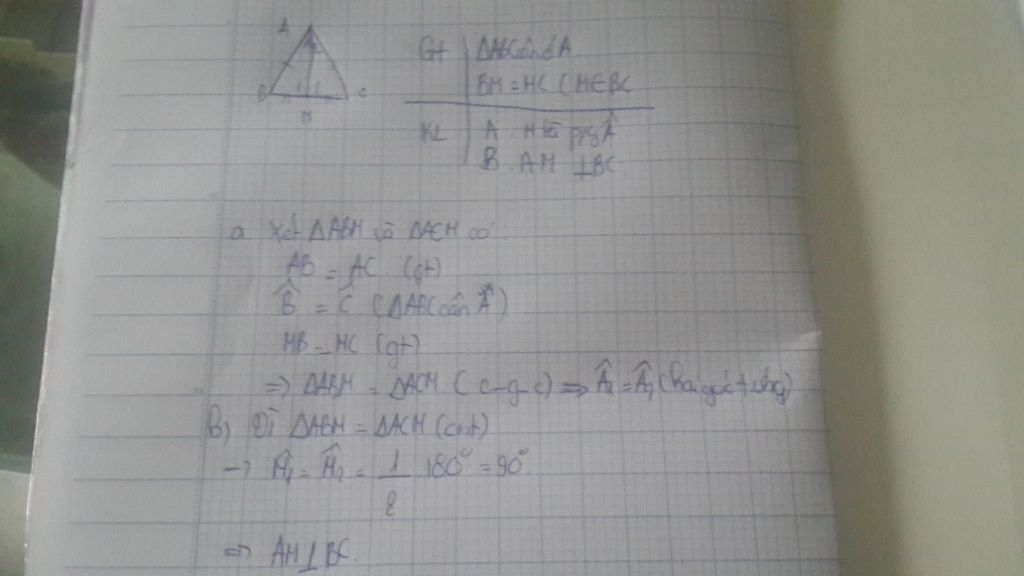 A
B C
H
Gt | ΔABC cân ở A
BH = HC ( H ∈ BC
KL | A . H là p/g Â
B . AH ⊥ BC
a Xét ΔABH và ΔACH có
AB = AC (gt)
B̂ = Ĉ (ΔABC cân Â)
HB = HC (gt)
=> ΔABH = ΔACH ( c-g-c) => Â₁ = Â₂ (hai góc tứng)
B) Vì ΔABH = ΔACH (cmt)
→ Ĥ₁ = Ĥ₂ = 1/2 . 180° = 90°
=> AH ⊥ BC.